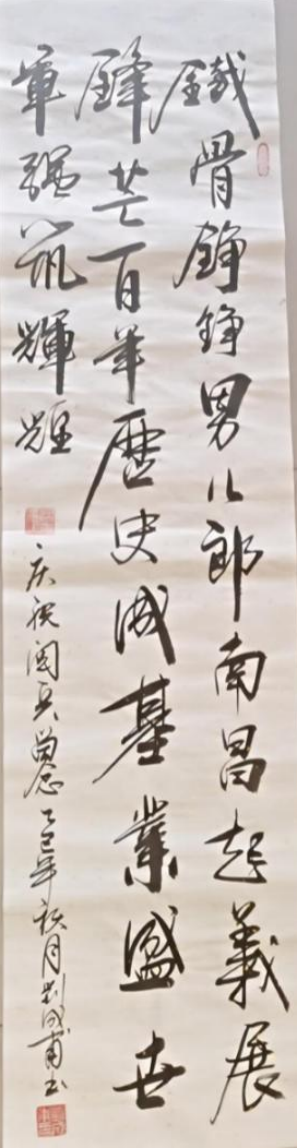 鐵骨錚錚男儿郎南昌起義展
鋒芒百年歷史成基業盛世
軍强筑輝煌
庆祝阅兵留念乙巳年秋月刘成甫书